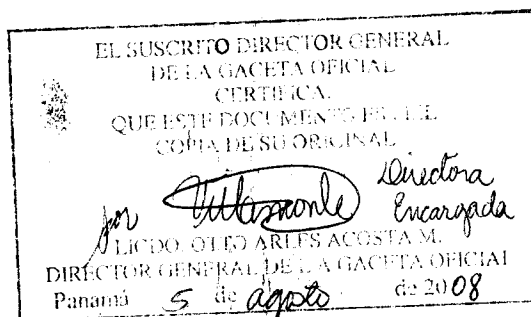 EL SUSCRITO DIRECTOR GENERAL
DE LA GACETA OFICIAL
CERTIFICA:
QUE ESTE DOCUMENTO ES FIEL
COPIA DE SU ORIGINAL
por Villamonte Directora
Encargada
LICDO. OTTO ARLES ACOSTA M.
DIRECTOR GENERAL DE LA GACETA OFICIAL
Panamá 5 de agosto de 2008